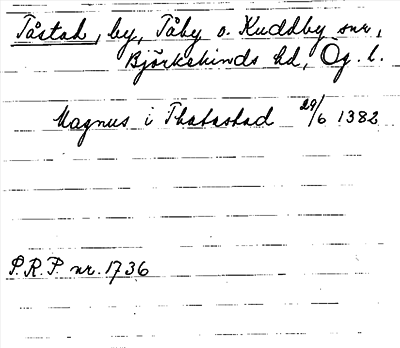 Tåstad, by, Tåby o. Kuddby snr,
Björkekinds hd, Ög. l.
Magnus i Thatastad 29/6 1382
P.R.P. nr. 1736